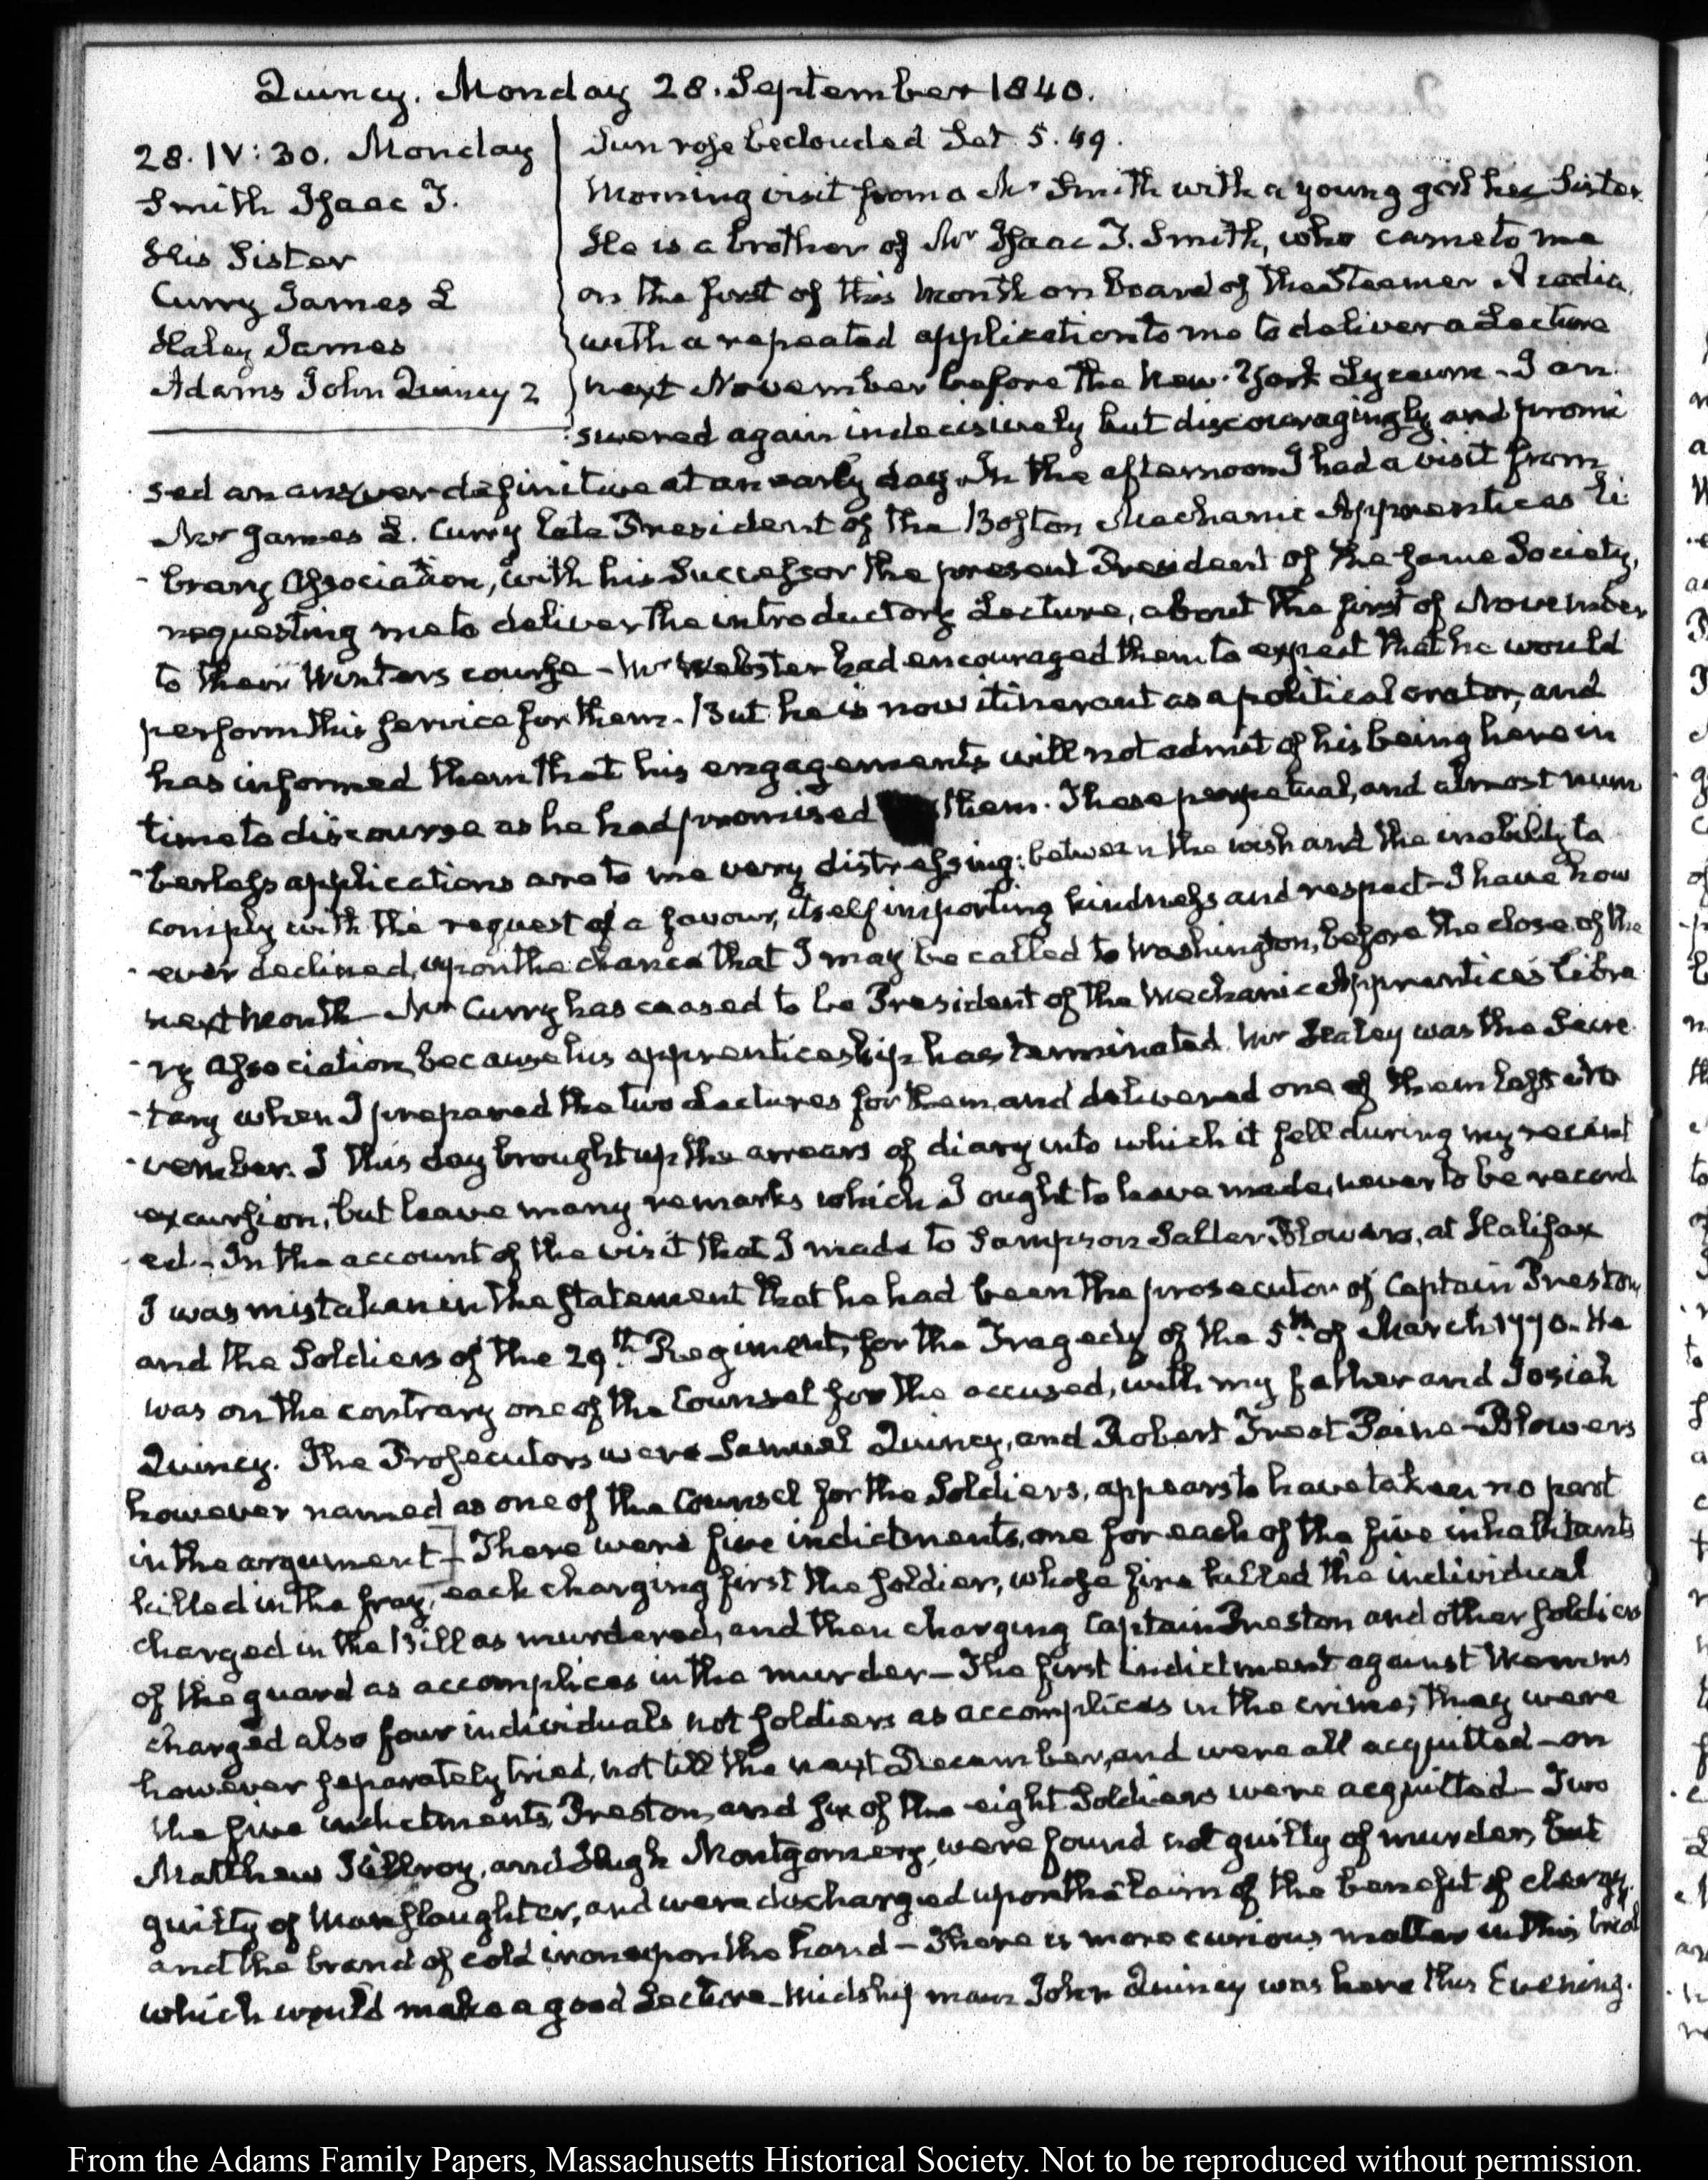 Quincy. Monday 28. September 1840.
28. IV: 30. Monday
Smith Isaac T.
His Sister
Curry James L
Haley James
Adams John Quincy 2
Sun rose beclouded Set 5. 49.
Morning visit from a Mr Smith with a young girl his Sister.
He is a brother of Mr Isaac T. Smith, who came to me
on the first of this Month on board of the Steamer Acadia,
with a repeated application to me to deliver a Lecture
next November before the New-York Lyceum - I an
swered again indecisively but discouragingly and promi
sed an answer definitive at an early day. In the afternoon I had a visit from
Mr James L. Curry late President of the Boston Mechanic Apprentices Li
-brary Association, with his Successor the present President of the same Society,
requesting me to deliver the introductory Lecture, about the first of November
to their Winters course - Mr Webster had encouraged them to expect that he would
perform this service for them - But he is now itinerant as a political orator, and
has informed them that his engagements will not admit of his being here in
time to discourse as he had promised them. These perpetual, and almost num
-berless applications are to me very distressing: between the wish and the inability to
comply with the request of a favour, itself importing kindness and respect - I have how
-ever declined, upon the chance that I may be called to Washington, before the close of the
next Month - Mr Curry has ceased to be President of the Mechanic Apprentices Libra
-ry Association, because his apprenticeship has terminated. Mr Haley was the Secre
-tary when I prepared the two Lectures for them, and delivered one of them last No
-vember. I this day brought up the arrears of diary into which it fell during my recent
excursion, but leave many remarks which I ought to have made, never to be record
ed - In the account of the visit that I made to Sampson Salter Blowers, at Halifax
I was mistaken in the statement that he had been the prosecutor of Captain Preston,
and the Soldiers of the 29th. Regiment, for the Tragedy of the 5th. of March 1770. He
was on the contrary one of the Counsel for the accused, with my father and Josiah
Quincy. The Prosecutors were Samuel Quincy, and Robert Treat Paine - Blowers
however named as one of the Counsel for the Soldiers, appears to have taken no part
in the argument] There were five indictments, one for each of the five inhabitants
killed in the fray, each charging first the soldier, whose fire killed the individual
charged in the Bill as murdered, and then charging Captain Preston and other soldiers
of the guard as accomplices in the murder - The first indictment against Wemms
charged also four individuals not soldiers as accomplices in the crime; they were
however separately tried, not till the next December, and were all acquitted - on
the five indictments, Preston, and six of the eight Soldiers were acquitted - Two
Matthew Killroy, and Hugh Montgomery, were found not guilty of murder, but
guilty of Manslaughter, and were discharged upon the claim of the benefit of clergy.
and the brand of cold iron upon the hand - There is more curious matter in this trial
which would make a good Lecture - Midshipman John Quincy was here this Evening.
From the Adams Family Papers, Massachusetts Historical Society. Not to be reproduced without permission.